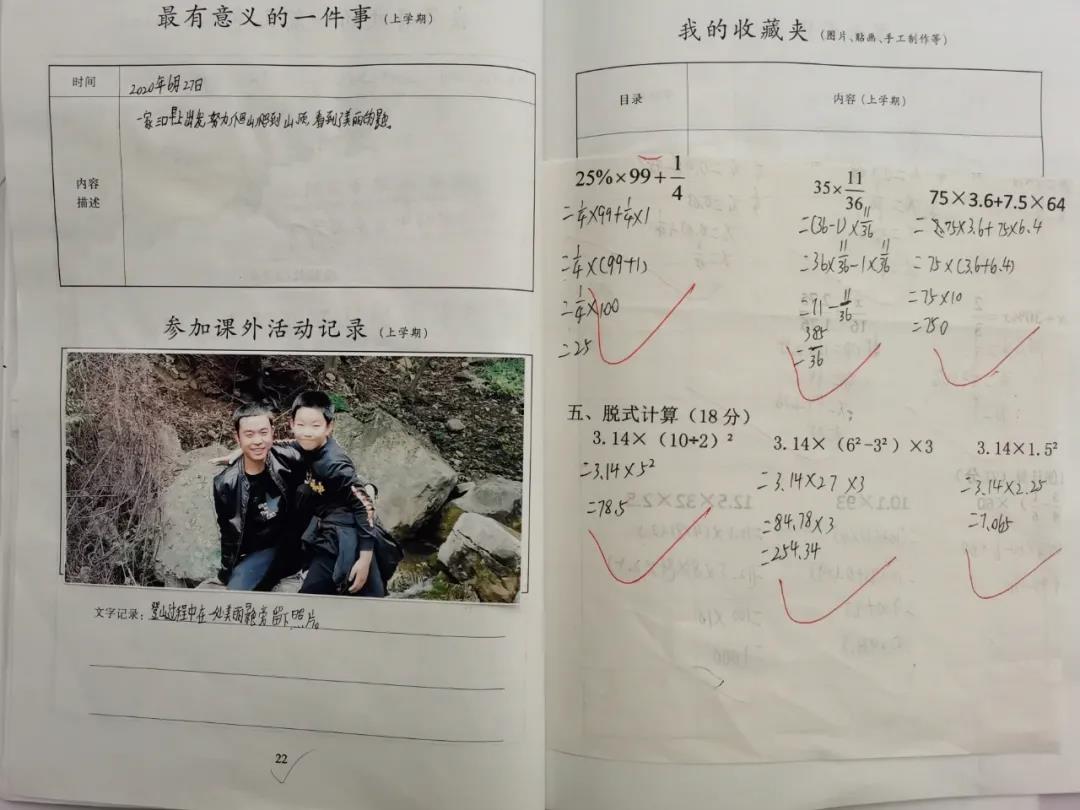 最有意义的一件事(上学期)
时间
2020年6月27日
内容
描述
一家三口早上出发,努力爬山爬到山顶,看到了美丽的景色。
参加课外活动记录(上学期)
文字记录:登山过程中在一处美丽景色旁留下照片。
22
我的收藏夹(图片、贴画、手工制作等)
目录
内容(上学期)
25%×99+1/4
=1/4×99+1/4×1
=1/4×(99+1)
=1/4×100
=25
35×11/36
=(36-1)×11/36
=36×11/36-1×11/36
=11-11/36
=385/36
75×3.6+7.5×64
=75×3.6+75×6.4
=75×(3.6+6.4)
=75×10
=750
五、脱式计算(18分)
3.14×(10÷2)²
=3.14×5²
=78.5
3.14×(6²-3²)×3
=3.14×27×3
=84.78×3
=254.34
3.14×1.5²
=3.14×2.25
=7.065